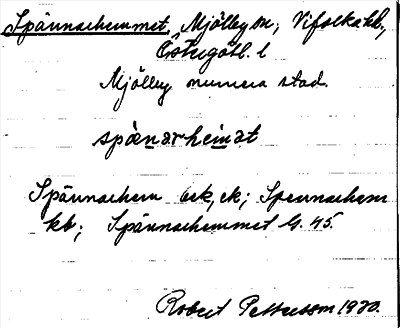 Spännarhemmet, Mjölby sn, Vifolka hd,
Östergötl. l
Mjölby numera stad.
spænarheimat
Spännarhem eck, ck; Spennarhem
kb; Spännarhemmet G. 45.
Robert Pettersson 1930.